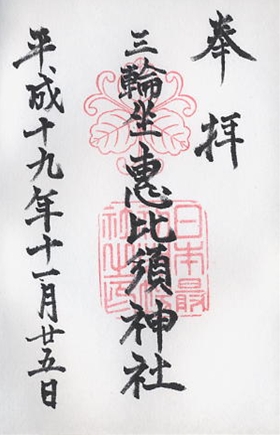 奉拝
三輪坐恵比須神社
日本最
平成十九年十一月廿五日